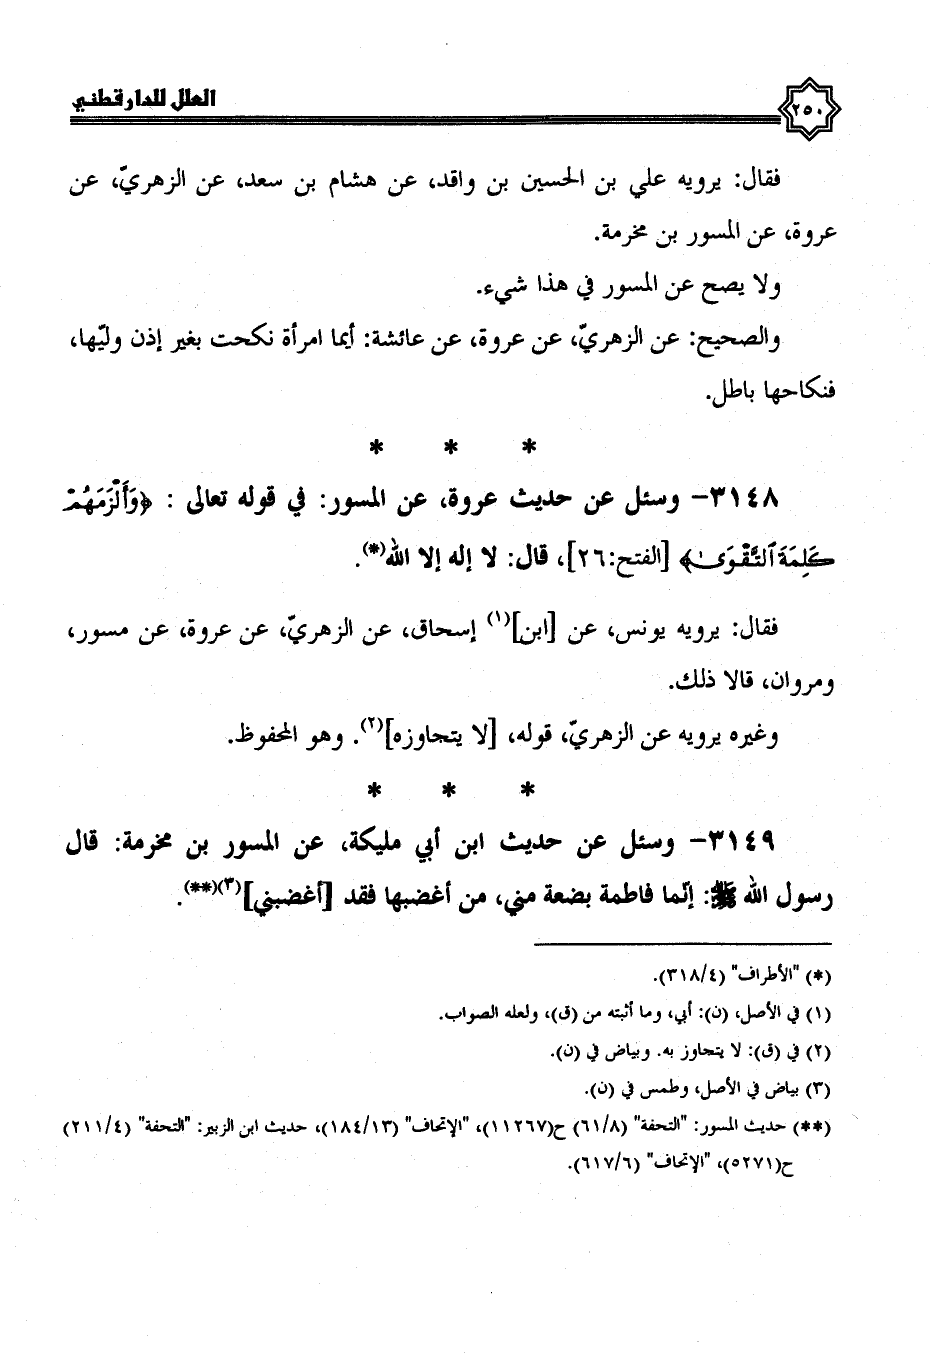 العلل للدارقطني
٢٥٠
فقال: يرويه علي بن الحسين بن واقد، عن هشام بن سعد، عن الزهريّ، عن
عروة، عن المسور بن مخرمة.
ولا يصح عن المسور في هذا شيء.
والصحيح: عن الزهريّ، عن عروة، عن عائشة: أيما امرأة نكحت بغير إذن وليّها،
فنكاحها باطل.
* * *
٣١٤٨- وسئل عن حديث عروة، عن المسور: في قوله تعالى : ﴿وَأَلْزَمَهُمْ
كَلِمَةَ ٱلتَّقْوَىٰ﴾ [الفتح:٢٦]، قال: لا إله إلا الله(*).
فقال: يرويه يونس، عن [ابن](١) إسحاق، عن الزهريّ، عن عروة، عن مسور،
ومروان، قالا ذلك.
وغيره يرويه عن الزهريّ، قوله، [لا يتجاوزه](٢). وهو المحفوظ.
* * *
٣١٤٩- وسئل عن حديث ابن أبي مليكة، عن المسور بن مخرمة: قال
رسول الله ﷺ: إنّما فاطمة بضعة مني، من أغضبها فقد [أغضبني](٣)(**).
(*) "الأطراف" (٣١٨/٤).
(١) في الأصل، (ن): أبي، وما أثبته من (ق)، ولعله الصواب.
(٢) في (ق): لا يتجاوز به. وبياض في (ن).
(٣) بياض في الأصل، وطمس في (ن).
(**) حديث المسور: "التحفة" (٦١/٨) ح(١١٢٦٧)، "الإتحاف" (١٨٤/١٣)، حديث ابن الزبير: "التحفة" (٢١١/٤)
ح(٥٢٧١)، "الإتحاف" (٦١٧/٦).